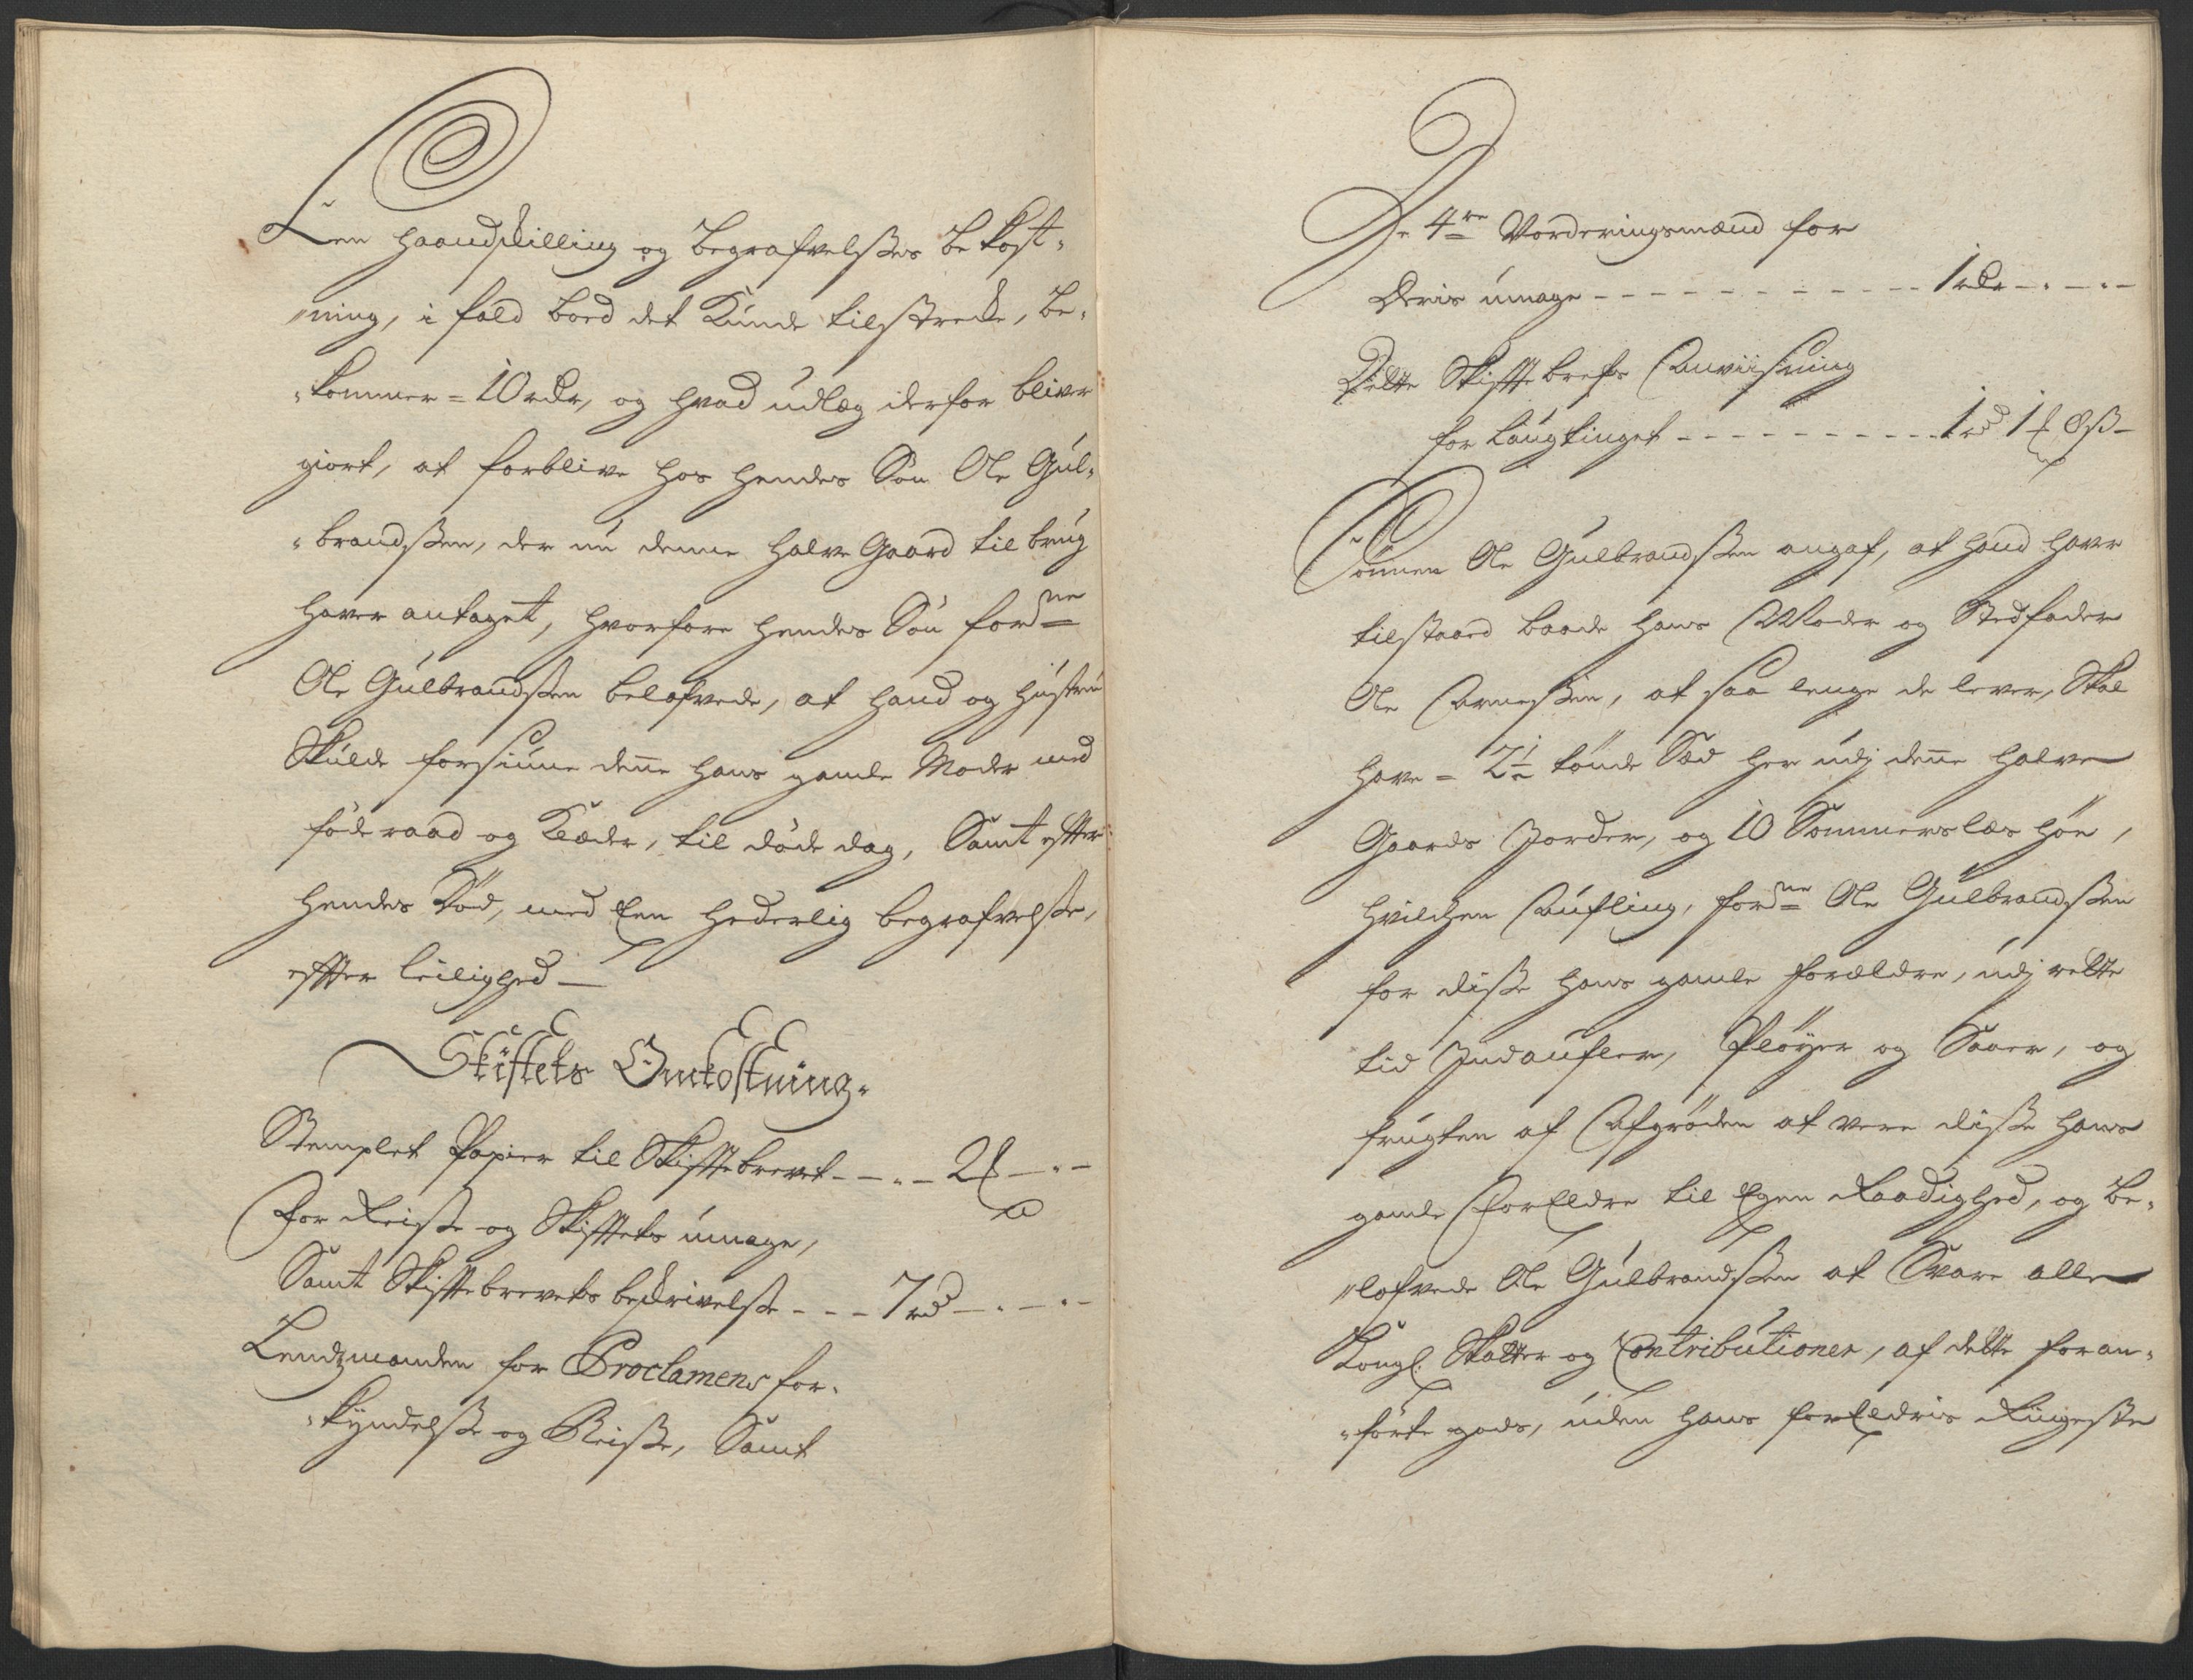 Een haandskilling og begrafvelses bekost-
"ning, i fald boed det kunde tilstrecke, be-
"kommer = 10 rdr, og hvad udlæg derfor bliver
giort, at forblive hos hendes Søn Ole Gul-
"brandssen, der nu denne halve Gaard til brug
haver antaget, hvorfore hendes Søn fordne
Ole Gulbrandssen belofvede, at hand og hustru
Skulde forsiune deñe hans gamle Moder med
föderaad og Klæder, til døde dag, Samt effter
hendes Død, med Een hederlig begrafvelse,
effter leilighed –
Skiftets Omkostning.
Stemplet Papier til Skifftebrevet - - - 2 –
For Reise og Skifftets umage,
Samt Skifftebrevets beskrivelse - - - 7 rd – - –
Lendzmanden for Proclamens for-
"kyndelse og Reise, Samt
De 4re Vorderingsmænd for
Deris umage - - - - - - - - 1 rdr - - -
Dette Skifftebrefs Anviisning
for laugtinget - - - - - - - - 1 rd 1 8 ß –
Sønnen Ole Gulbrandssen angaf, at hand haver
tilstaaed baade hans Moder og Stedfader
Ole Arnessen, at saa lenge de lever, Skal
have = 2½ tönde Sæd her udj deñe halve
Gaards Jorder, og 10 Sommerlæs höe,
hvilchen Aufling, fordne Ole Gulbrandssen
for disse hans gamle forældre, udj rette
tid Indaufler, Pløyer og Saaer, og
frugten af Afgrøden at vere disse hans
gamle ForEldre til Egen Raadighed, og be-
"lofvede Ole Gulbrandssen at Svare alle
Kongl. Skatter og Contributioner, af dette foran-
"førte gods, uden hans forEldris Ringeste